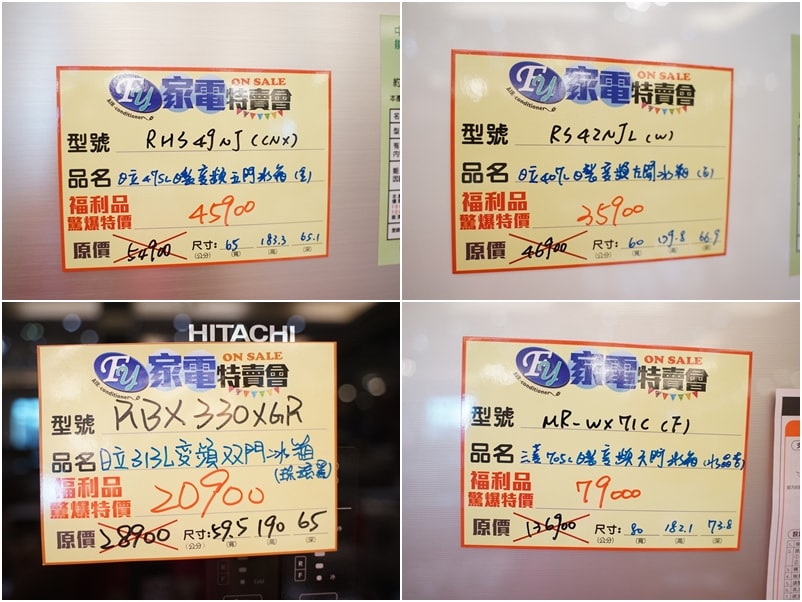 FY 家電 ON SALE 特賣會
Air-conditioner
型號 RHS49NJ (CNX)
品名 日立475L日製變頻五門冰箱(金)
福利品
驚爆特價 45900
原價 54900 尺寸: 65 183.3 65.1
(公分) (寬) (高) (深)
FY 家電 ON SALE 特賣會
Air-conditioner
型號 RS42NJL (W)
品名 日立407L日製變頻左開冰箱(白)
福利品
驚爆特價 35900
原價 46900 尺寸: 60 179.8 66.9
(公分) (寬) (高) (深)
HITACHI
FY 家電 ON SALE 特賣會
Air-conditioner
型號 RBX330XGR
品名 日立313L變頻双門冰箱
(琉璃)
福利品
驚爆特價 20900
原價 28900 尺寸: 59.5 190 65
(公分) (寬) (高) (深)
FY 家電 ON SALE 特賣會
Air-conditioner
型號 MR-WX71C (F)
品名 三菱705L日製變頻六門冰箱(水晶杏)
福利品
驚爆特價 79000
原價 136900 尺寸: 80 182.1 73.8
(公分) (寬) (高) (深)